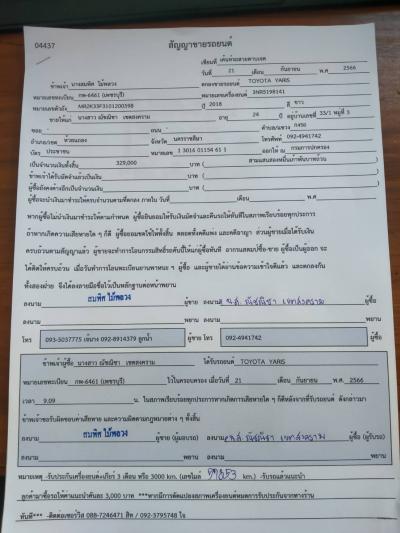 04437
สัญญาขายรถยนต์
เขียนที่ เต็นท์รถสวยตาบเซต
วันที่ 21 เดือน กันยายน พ.ศ 2566
ข้าพเจ้า นางสมทิศ ไม้พลวง ตกลงขายรถยนต์ TOYOTA YARIS
หมายเลขทะเบียน กพ-6461 (เพชรบุรี) หมายเลขเครื่องยนต์ 3NR5198141
หมายเลขตัวถัง MR2K33F3101200398 ปี 2018 สี ขาว
ขายให้แก่ นางสาว ณัชณิชา เขตสงคราม อายุ 24 ปี อยู่บ้านเลขที่ 33/1 หมู่ที่ 3
ซอย - ถนน ตำบล/แขวง กงรถ
อำเภอ/เขต ห้วยแถลง จังหวัด นครราชสีมา โทรศัพท์ 092-4941742
บัตร ประชาชน หมายเลข 1 3016 01154 61 1 ออกให้ ณ กรมการปกครอง
เป็นจำนวนเงินทั้งสิ้น 329,000 บาท ( สามแสนสองหมื่นเก้าพันบาทถ้วน )
ข้าพเจ้าได้รับมัดจำแล้วเป็นเงิน บาท ( )
ผู้ซื้อยังคงค้างอีกเป็นจำนวนเงิน บาท ( )
ผู้ซื้อจะนำเงินมาชำระให้ครบจำนวนตามที่ตกลง ภายใน วันที่ เดือน พ.ศ
หากผู้ซื้อไม่นำเงินมาชำระให้ตามกำหนด ผู้ซื้อยินยอมให้รับเงินมัดจำและคืนรถให้ทันทีในสภาพเรียบร้อยทุกประการ
ถ้าหากเกิดความเสียหายใด ๆ ก็ดี ผู้ซื้อยอมชดใช้ให้ทั้งสิ้น ตลอดทั้งคดีแพ่ง และคดีอาญา ส่วนผู้ขายเมื่อได้รับเงิน
ครบถ้วนตามสัญญาแล้ว ผู้ขายจะทำการโอนกรรมสิทธิ์รถคันนี้ให้แก่ผู้ซื้อทันที อากรแสตมป์ซื้อ-ขาย ผู้ซื้อเป็นผู้ออก จะ
ได้คิดให้ครบถ้วน เมื่อวันทำการโอนทะเบียนยานพาหนะ ฯ ผู้ซื้อ และผู้ขายได้อ่านข้อความเข้าใจดีแล้ว และตกลงกัน
ทั้งสองฝ่าย จึงได้ลงลายมือชื่อไว้เป็นหลักฐานต่อหน้าพยาน
ลงนาม สมทิศ ไม้พลวง ผู้ขาย ลงนาม น.ส. ณัชณิชา เขตสงคราม ผู้ซื้อ
ลงนาม พยาน ลงนาม พยาน
โทร 093-5037775 เจ้นาง 092-8914379 ลูกน้ำ ผู้ขาย โทร 092-4941742 ผู้ซื้อ
ข้าพเจ้าผู้ซื้อ นางสาว ณัชณิชา เขตสงคราม ได้รับรถยนต์ TOYOTA YARIS
หมายเลขทะเบียน กพ-6461 (เพชรบุรี) ไว้ในครอบครอง เมื่อวันที่ 21 เดือน กันยายน พ.ศ 2566
เวลา 9.09 น. ในสภาพเรียบร้อยทุกประการหากเกิดการเสียหายใด ๆ ก็ดีหลังจากที่รับรถยนต์ ดังกล่าวมา
ข้าพเจ้าขอรับผิดชอบค่าเสียหาย และความผิดตามกฎหมายต่าง ๆ ทั้งสิ้น
ลงนาม สมทิศ ไม้พลวง ผู้ขาย (ผู้มอบรถ) ลงนาม น.ส. ณัชณิชา เขตสงคราม ผู้ซื้อ (ผู้รับรถ)
ลงนาม พยาน ลงนาม พยาน
หมายเหตุ -รับประกันเครื่องยนต์เกียร์ 3 เดือน หรือ 3000 km. (เลขไมล์ km.) -รับรถแล้วแนะนำ
ลูกค้ามาซื้อรถให้ค่าแนะนำคันละ 3,000 บาท ***หากมีการดัดแปลงสภาพเครื่องยนต์หมดการรับประกันจากทางร้าน
ทันที*** -ติดต่อเซอร์วิส 088-7246471 สิท / 092-3795748 ใจ